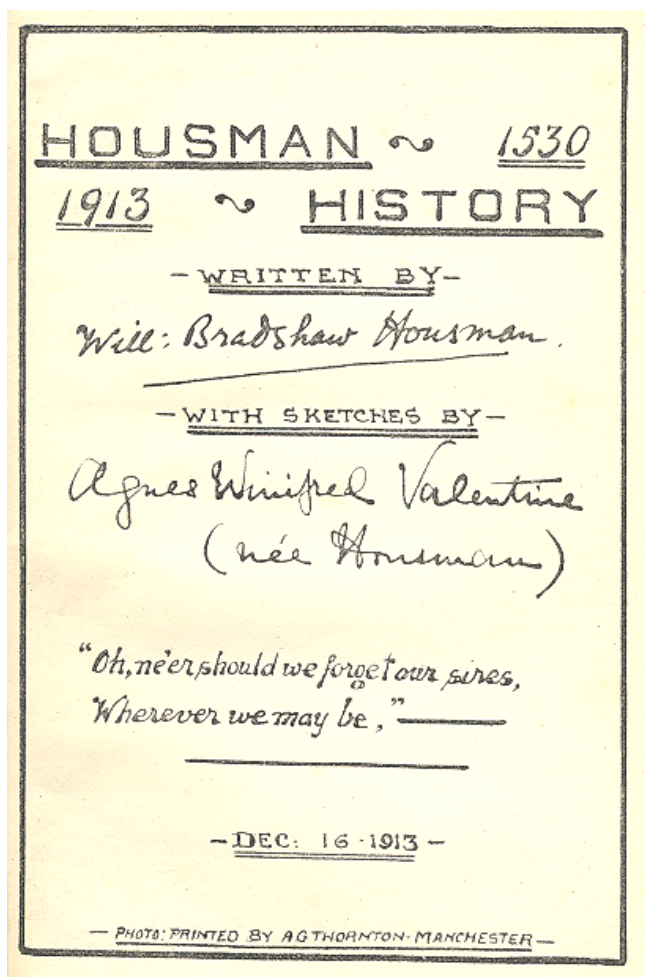 HOUSMAN ~ 1530
1913 ~ HISTORY
- WRITTEN BY -
Will: Bradshaw Housman.
- WITH SKETCHES BY -
Agnes Winifred Valentine
(née Housman)
"Oh, ne'er should we forget our sires,
Wherever we may be," ——
- DEC: 16 · 1913 -
- PHOTO: PRINTED BY A G THORNTON · MANCHESTER -